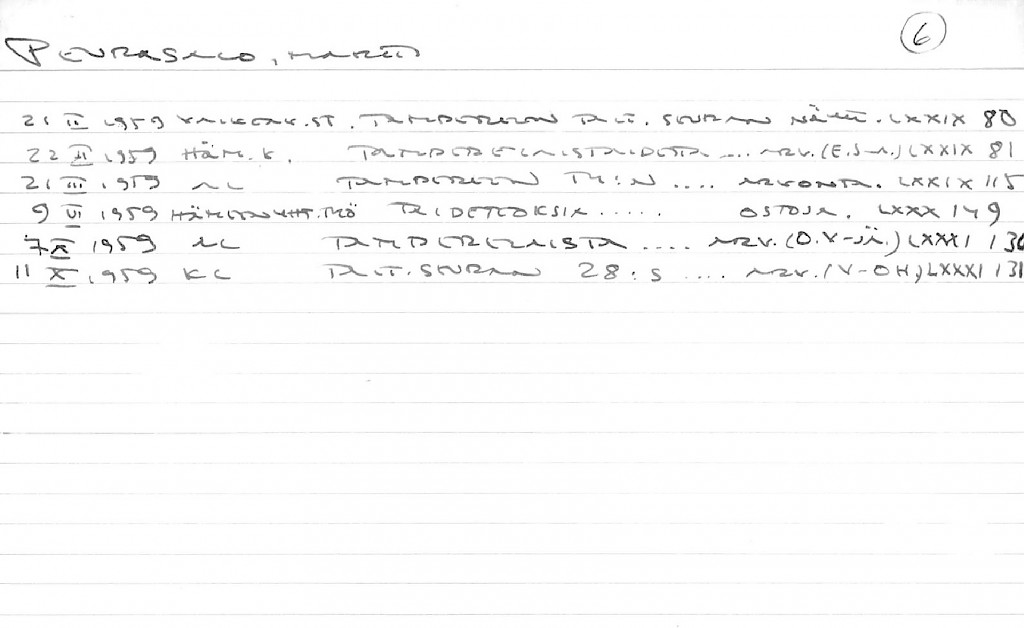 6
PEURASALO, MARTTI
21 II 1959 VALKEAK. ST. TAMPEREEN TAIT. SEURAN NÄYTT. LXXIX 80
22 II 1959 HÄM. K. TAMPERELAISTAIDETTA .... ARV. (E. S-A.) LXXIX 81
21 III 1959 AL TAMPEREEN TM:N .... ARVONTA. LXXIX 115
9 VI 1959 HÄMEEN YHT.TYÖ TAIDETEOKSIA ..... OSTOJA. LXXX 149
7 X 1959 AL TAMPERELAISTA .... ARV. (O. V-JÄ.) LXXXI 130
11 X 1959 KL TAIT. SEURAN 28:S .... ARV. (V-OH) LXXXI 131